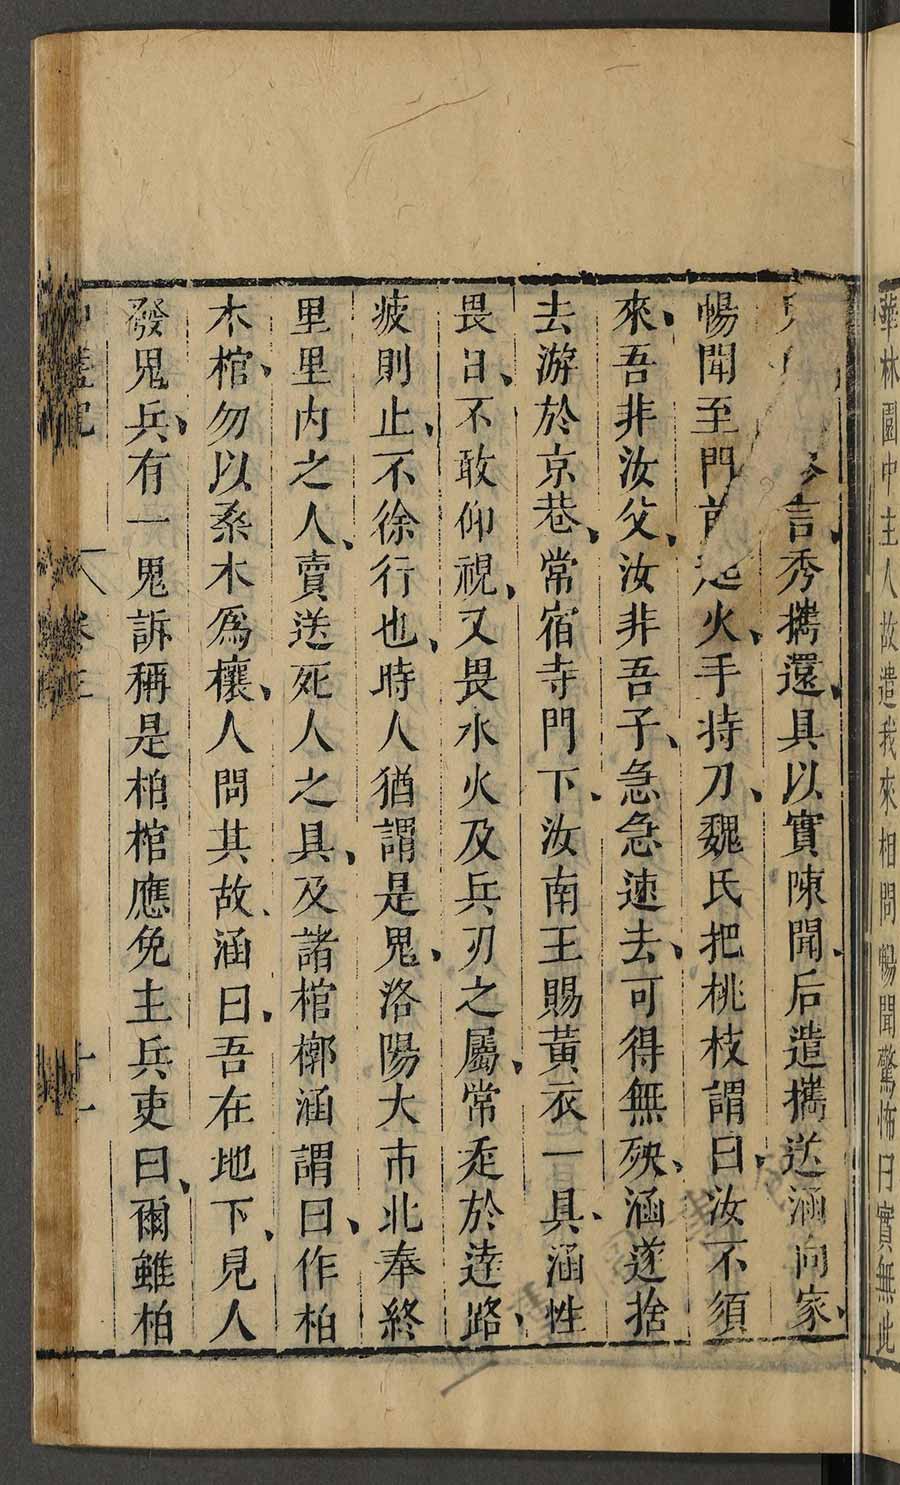 華林園中主人故遣我來相問暢聞驚怖曰實無此
言秀攜還具以實陳聞后遣攜送涵向家
暢聞至門前起火手持刀魏氏把桃枝謂曰汝不須
來吾非汝父汝非吾子急急速去可得無殃涵遂捨
去游於京巷常宿寺門下汝南王賜黃衣一具涵性
畏日不敢仰視又畏水火及兵刃之屬常走於逵路
疲則止不徐行也時人猶謂是鬼洛陽大市北奉終
里里內之人賣送死人之具及諸棺槨涵謂曰作柏
木棺勿以桑木為欀人問其故涵曰吾在地下見人
發鬼兵有一鬼訴稱是柏棺應免主兵吏曰爾雖柏
卷三 十一